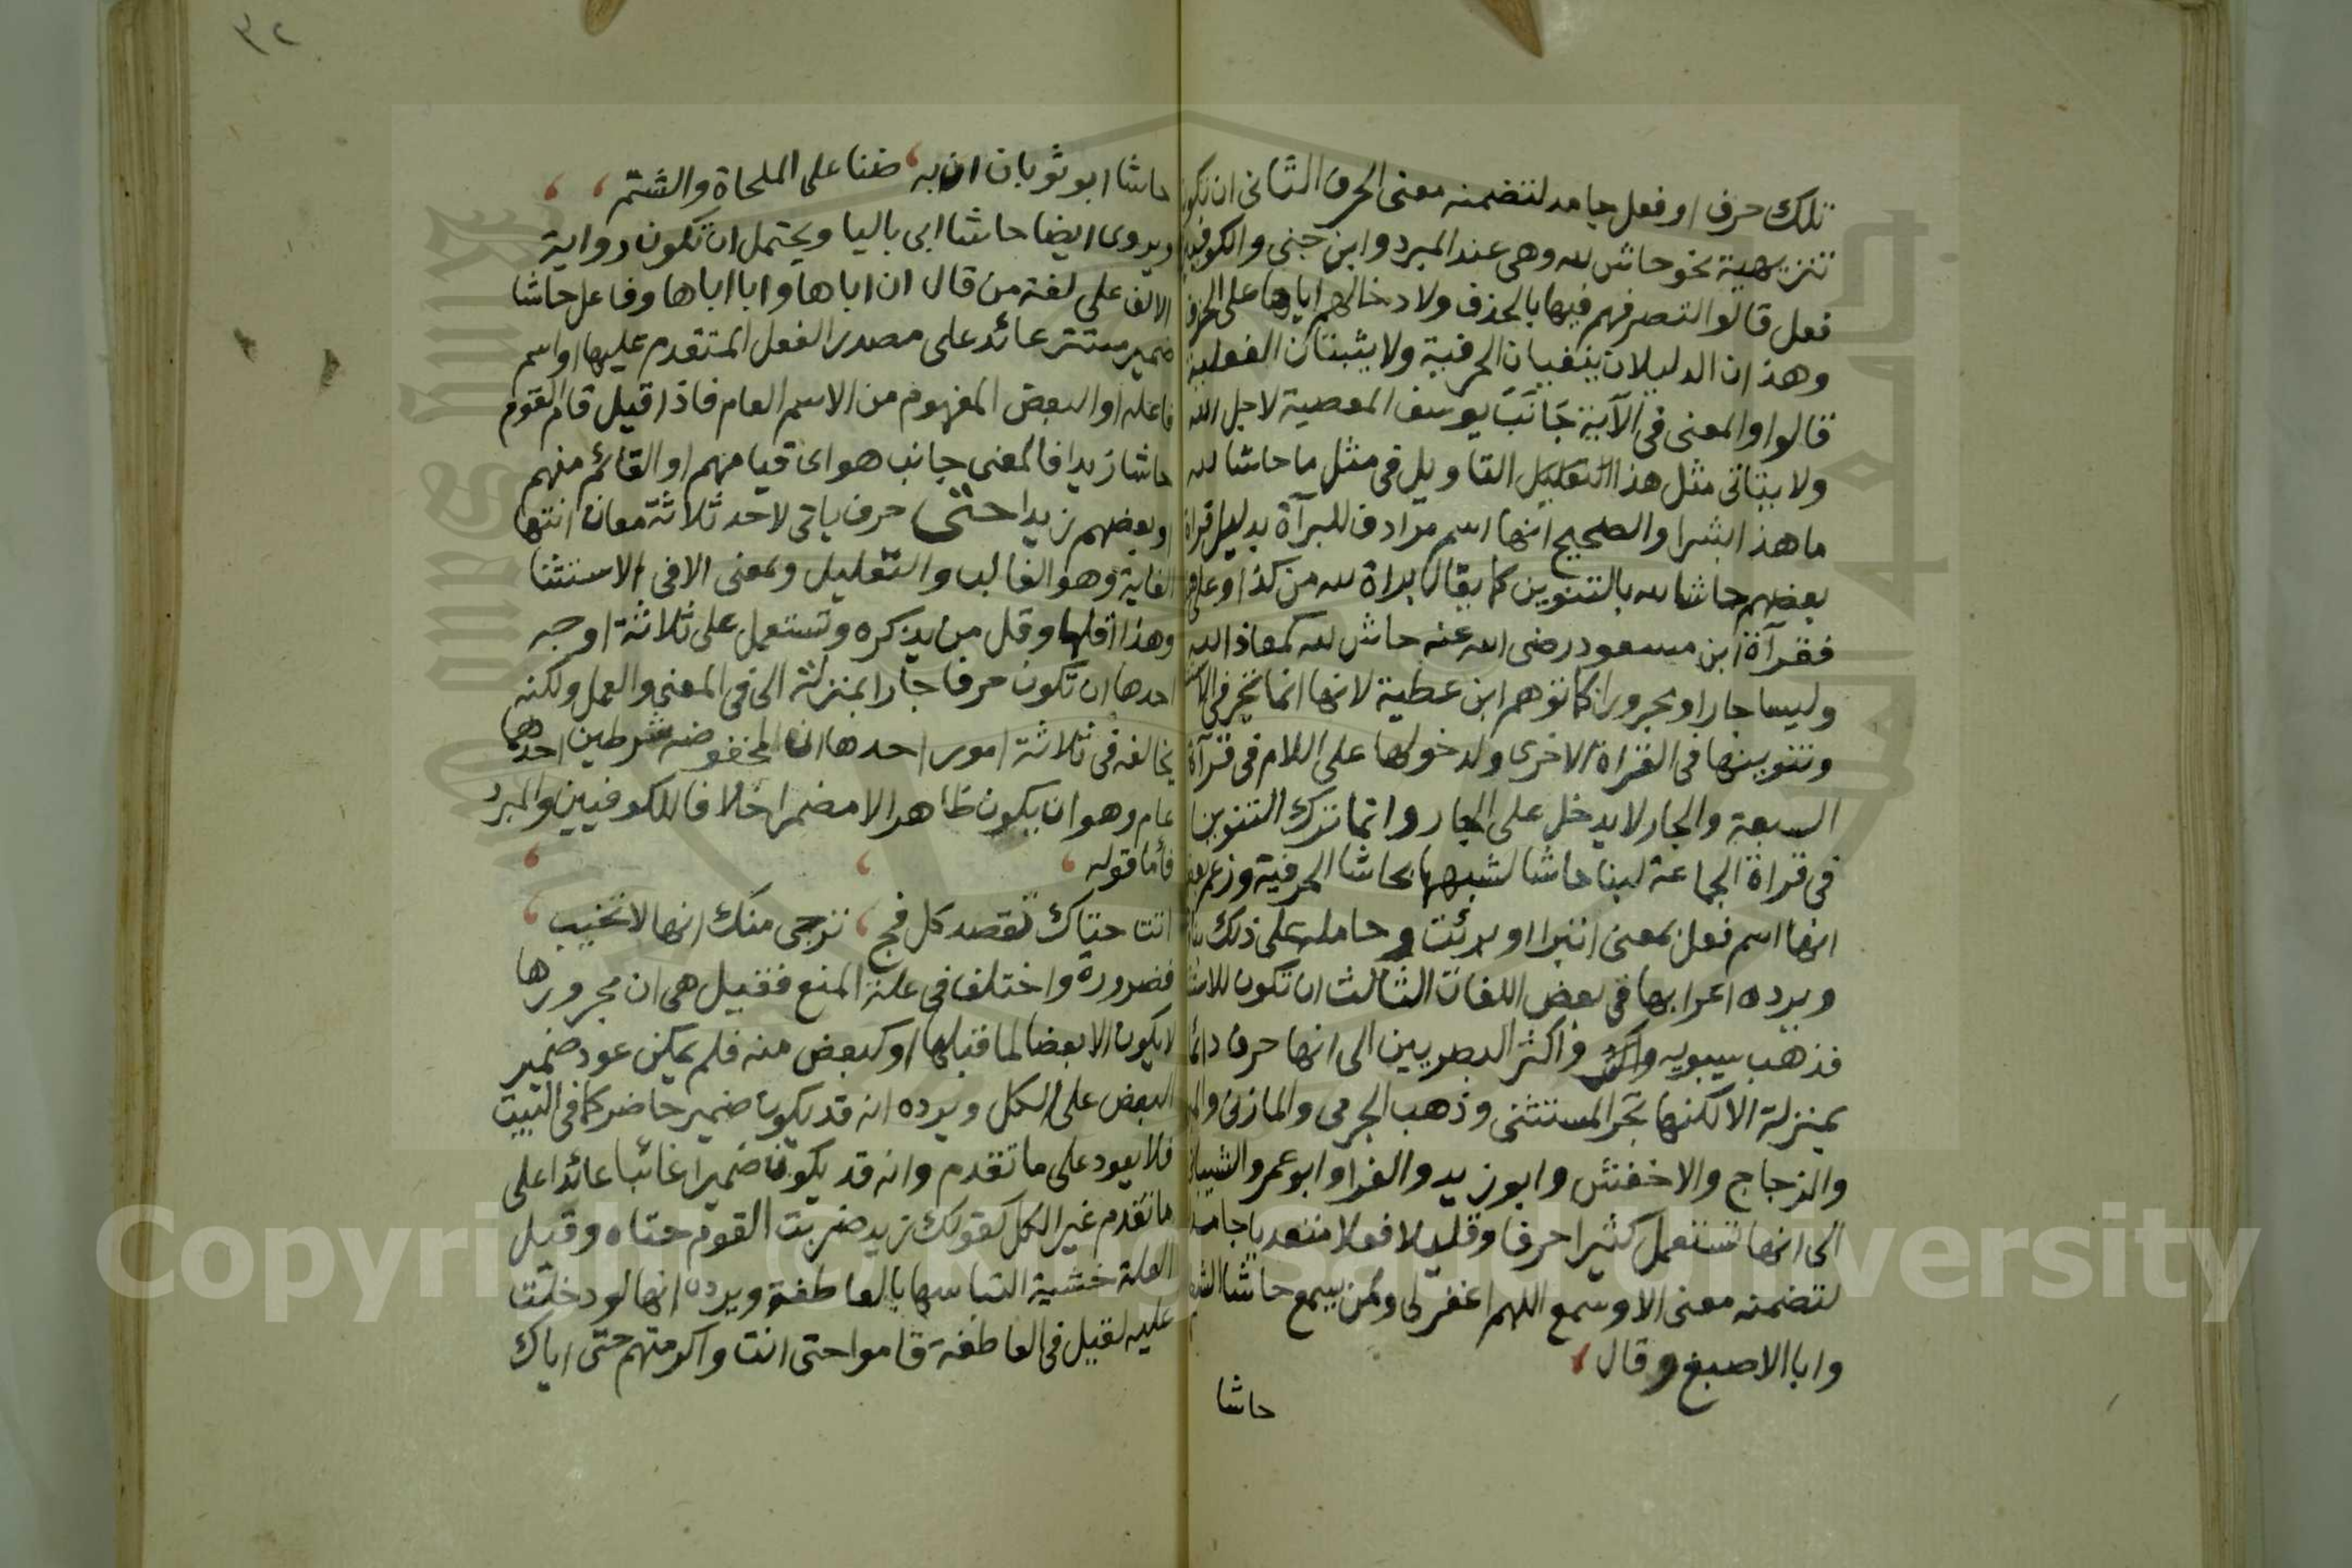 ٣٢
تلك حرف او فعل جامد لتضمنه معنى الحرف الثانى ان تكون
تنزيهية نحو حاش لله وهى عند المبرد وابن جنى والكوفيين
فعل قالوا التصرفهم فيها بالحذف ولا دخالهم اياها على الحرف
وهذان الدليلان ينفيان الحرفية ولا يثبتان الفعلية
قالوا والمعنى فى الآية جَانَبَ يوسف المعصية لاجل الله
ولا يتاتى مثل هذا التاويل فى مثل ما حاشا لله
ما هذا بشرا والصحيح انها اسم مرادف للبرآة بدليل قراة
بعضهم حاشا لله بالتنوين كما يقال براة لله من كذا وعلى هذا
فقرآة ابن مسعود رضى الله عنه حاش لله كمعاذ الله
وليسا جارا ومجرورا كما توهم ابن عطية لانها انما تجر فى الاستثنا
وتنوينها فى القراة الاخرى ولدخولها على اللام فى قرآة
السبعة والجار لا يدخل على الجار وانما ترك التنوين
فى قراة الجماعة لبنا حاشا لشبهها بحاشا الحرفية وزعم بعضهم
انها اسم فعل بمعنى اتبرا او برئت وحامله على ذلك بناؤها
ويرده اعرابها فى بعض اللغات الثالث ان تكون للاستثنا
فذهب سيبويه واكثر البصريين الى انها حرف دائما
بمنزلة الا لكنها تجر المستثنى وذهب الجرمى والمازنى والمبرد
والزجاج والاخفش وابو زيد والفرا وابو عمرو الشيبانى
الى انها تستعمل كثيرا حرفا وقليلا فعلا متعديا جامدا
لتضمنه معنى الا وسمع اللهم اغفر لى ولمن يسمع حاشا الشيطان
وابا الاصبغ وقال
حاشا
حاشا ابو ثوبان ان به ضنا على الملحاة والشتم
ويروى ايضا حاشا ابى باليا ويحتمل ان تكون رواية
الالف على لغة من قال ان اباها وابا اباها وفاعل حاشا
ضمير مستتر عائد على مصدر الفعل المتقدم عليها او اسم
فاعله او البعض المفهوم من الاسم العام فاذا قيل قام القوم
حاشا زيدا فالمعنى جانب هو اى قيامهم او القائم منهم
او بعضهم زيدا حتى حرف ياتى لاحد ثلاثة معان انتها
الغاية وهو الغالب والتعليل وبمعنى الا فى الاستثنا
وهذا اقلها وقل من يذكره وتستعمل على ثلاثة اوجه
احدها ان تكون حرفا جارا بمنزلة الى فى المعنى والعمل ولكنه
يخالفه فى ثلاثة امور احدها ان لمخفوضه شرطين احدهما
عام وهو ان يكون ظاهرا لا مضمرا خلافا للكوفيين والمبرد
فأما قوله
اتت حتاك تقصد كل فج ترجى منك انها لا تخيب
فضرورة واختلف فى علة المنع فقيل هى ان مجرورها
لا يكون الا بعضا لما قبلها او كبعض منه فلم يمكن عود ضمير
البعض على الكل ويرده انه قد يكون ضمير حاضر كما فى البيت
فلا يعود على ما تقدم وانه قد يكون ضميرا غائبا عائدا على
ما تقدم غير الكل كقولك زيد ضربت القوم حتاه وقيل
العلة خشية التباسها بالعاطفة ويرده انها لو دخلت
عليه لقيل فى العاطفة قاموا حتى انت واكرمتهم حتى اياك
Copyright © King Saud University